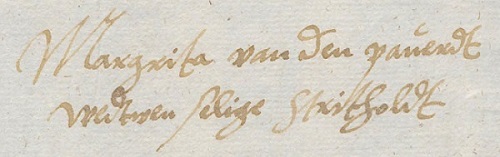 Margrita van den pauerdt
wedtwen selige Stritholdt